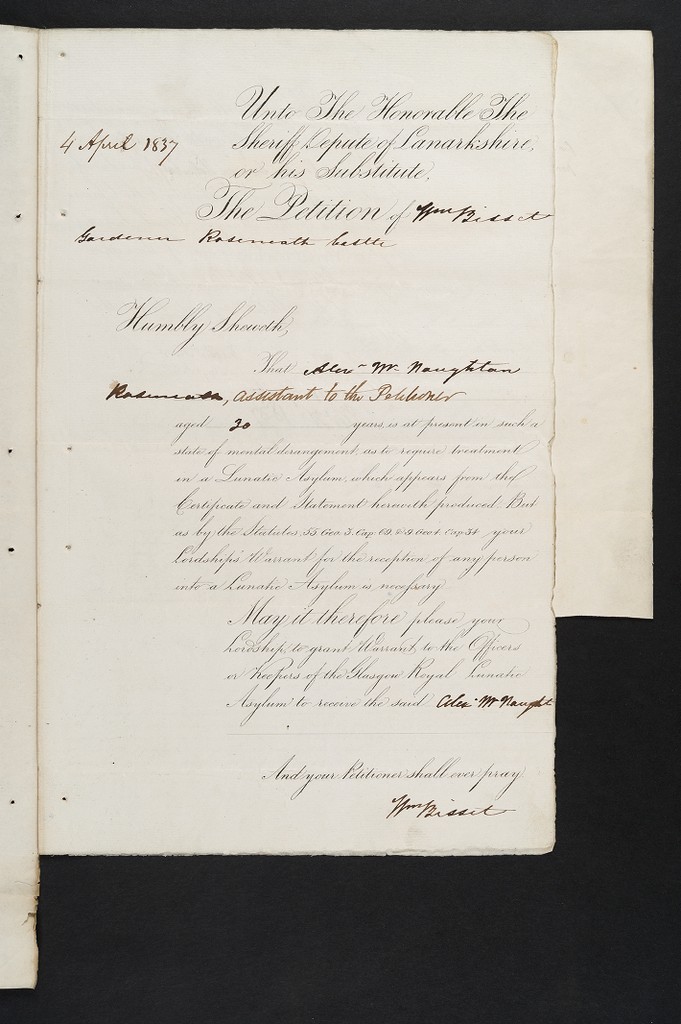 Unto The Honorable The
4 April 1837
Sheriff Depute of Lanarkshire,
or his Substitute.
The Petition of Wm Bisset
Gardener Roseneath Castle
Humbly Sheweth,
That Alexr Mc Naughton
Roseneath, assistant to the Petitioner
aged 30 years, is at present in such a
state of mental derangement, as to require treatment
in a Lunatic Asylum, which appears from the
Certificate and Statement herewith produced. But
as by the Statutes, 55 Geo. 3. Cap. 69. & 9 Geo 4. Cap. 34 your
Lordship's Warrant for the reception of any person
into a Lunatic Asylum is necessary
May it therefore please your
Lordship, to grant Warrant, to the Officers
or Keepers of the Glasgow Royal Lunatic
Asylum to receive the said Alexr Mc Naught
And your Petitioner shall ever pray
Wm Bisset